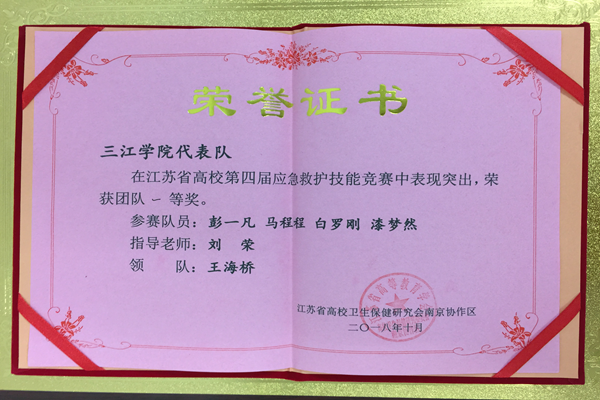 荣誉证书
三江学院代表队
在江苏省高校第四届应急救护技能竞赛中表现突出，荣
获团队一等奖。
参赛队员：彭一凡 马程程 白罗刚 漆梦然
指导老师：刘 荣
领 队：王海桥
江苏省高校卫生保健研究会南京协作区
二〇一八年十月